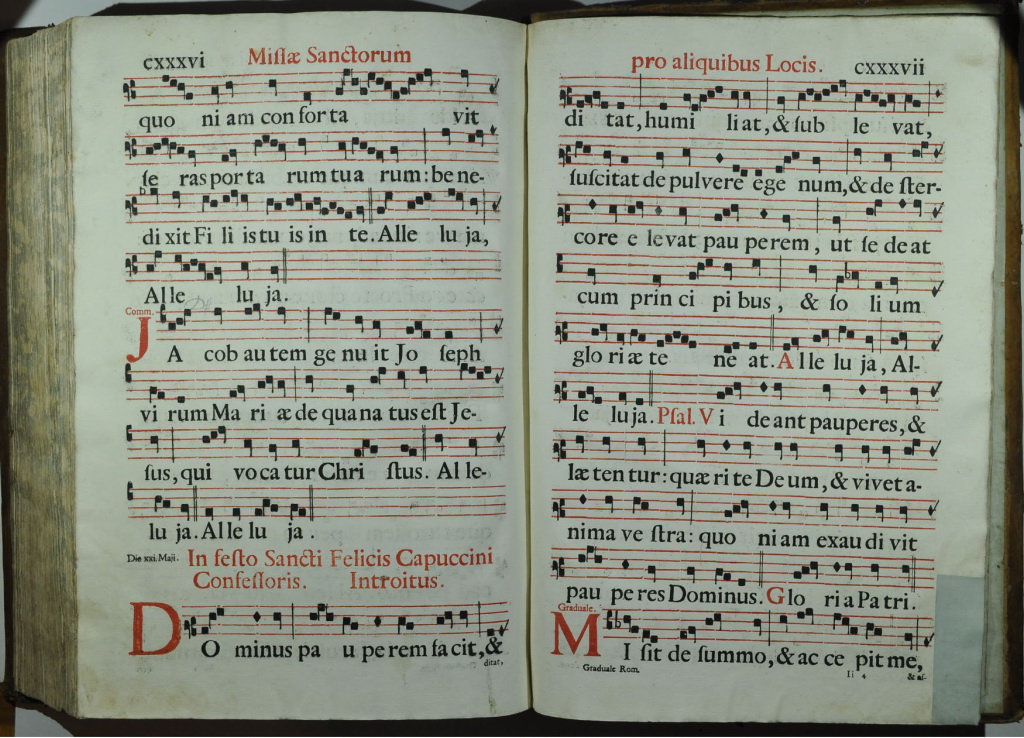 cxxxvi Miſſæ Sanctorum
quo ni am con for ta vit
ſe ras por ta rum tua rum: be ne-
di xit Fi li is tu is in te. Alle lu ja,
Al le lu ja.
Comm.
J A cob au tem ge nu it Jo ſeph
vi rum Ma ri æ de qua na tus eſt Je-
ſus, qui vo ca tur Chri ſtus. Al le-
lu ja. Al le lu ja.
Die xxi. Maji. In feſto Sancti Felicis Capuccini
Confeſſoris. Introitus.
D O minus pa u pe rem fa cit, &
ditat,
pro aliquibus Locis. cxxxvii
di tat, humi li at, & ſub le vat,
ſuſcitat de pulvere ege num, & de ſter-
core e levat pau perem, ut ſe de at
cum prin ci pi bus, & ſo li um
glo ri æ te ne at. A lle lu ja, Al-
le lu ja. Pſal. V i de ant pauperes, &
læ ten tur: quæ ri te De um, & vivet a-
nima ve ſtra: quo ni am exau di vit
pau pe res Dominus. G lo ri a Pa tri.
Graduale.
M I ſit de ſummo, & ac ce pit me,
Graduale Rom. Ii 4 & aſ-